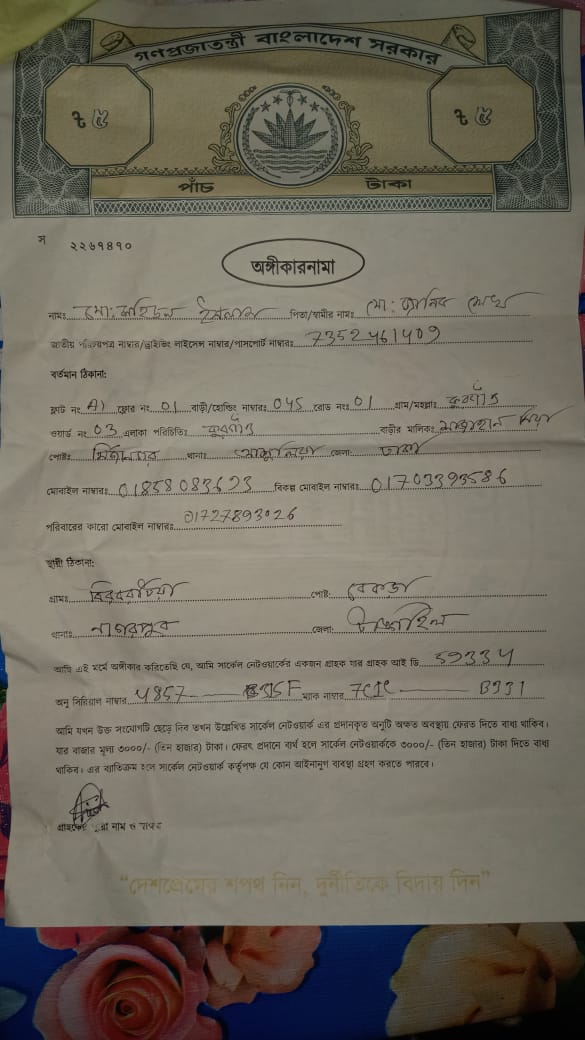 গণপ্রজাতন্ত্রী বাংলাদেশ সরকার
৳ ৫ ৳ ৫
পাঁচ টাকা
স ২২৬৭৪৭০
অঙ্গীকারনামা
নামঃ মো: ইসলাম পিতা/স্বামীর নামঃ মো:
জাতীয় পরিচয়পত্র নাম্বার/ড্রাইভিং লাইসেন্স নাম্বার/পাসপোর্ট নাম্বারঃ 7352461409
বর্তমান ঠিকানা:
ফ্লাট নং A1 ফ্লোর নং 01 বাড়ী/হোল্ডিং নাম্বারঃ 045 রোড নংঃ 01 গ্রাম/মহল্লাঃ
ওয়ার্ড নং 03 এলাকা পরিচিতিঃ বাড়ীর মালিকঃ মিয়া
পোষ্টঃ থানাঃ আশুলিয়া জেলাঃ ঢাকা
মোবাইল নাম্বারঃ 01858083623 বিকল্প মোবাইল নাম্বারঃ 01703393586
পরিবারের কারো মোবাইল নাম্বারঃ 01727893026
স্থায়ী ঠিকানা:
গ্রামঃ পোষ্টঃ বেকড়া
থানাঃ নাগরপুর জেলাঃ টাঙ্গাইল
আমি এই মর্মে অঙ্গীকার করিতেছি যে, আমি সার্কেল নেটওয়ার্কের একজন গ্রাহক যার গ্রাহক আই ডি 59334
অনু সিরিয়াল নাম্বার 4857 ম্যাক নাম্বার 7C1C B931
আমি যখন উক্ত সংযোগটি ছেড়ে দিব তখন উল্লেখিত সার্কেল নেটওয়ার্ক এর প্রদানকৃত অনুটি অক্ষত অবস্থায় ফেরত দিতে বাধ্য থাকিব।
যার বাজার মূল্য ৩০০০/- (তিন হাজার) টাকা। ফেরৎ প্রদানে ব্যর্থ হলে সার্কেল নেটওয়ার্ককে ৩০০০/- (তিন হাজার) টাকা দিতে বাধ্য
থাকিব। এর ব্যতিক্রম হলে সার্কেল নেটওয়ার্ক কর্তৃপক্ষ যে কোন আইনানুগ ব্যবস্থা গ্রহণ করতে পারবে।
গ্রাহকের নাম ও
"দেশপ্রেমের শপথ নিন, দুর্নীতিকে বিদায় দিন"